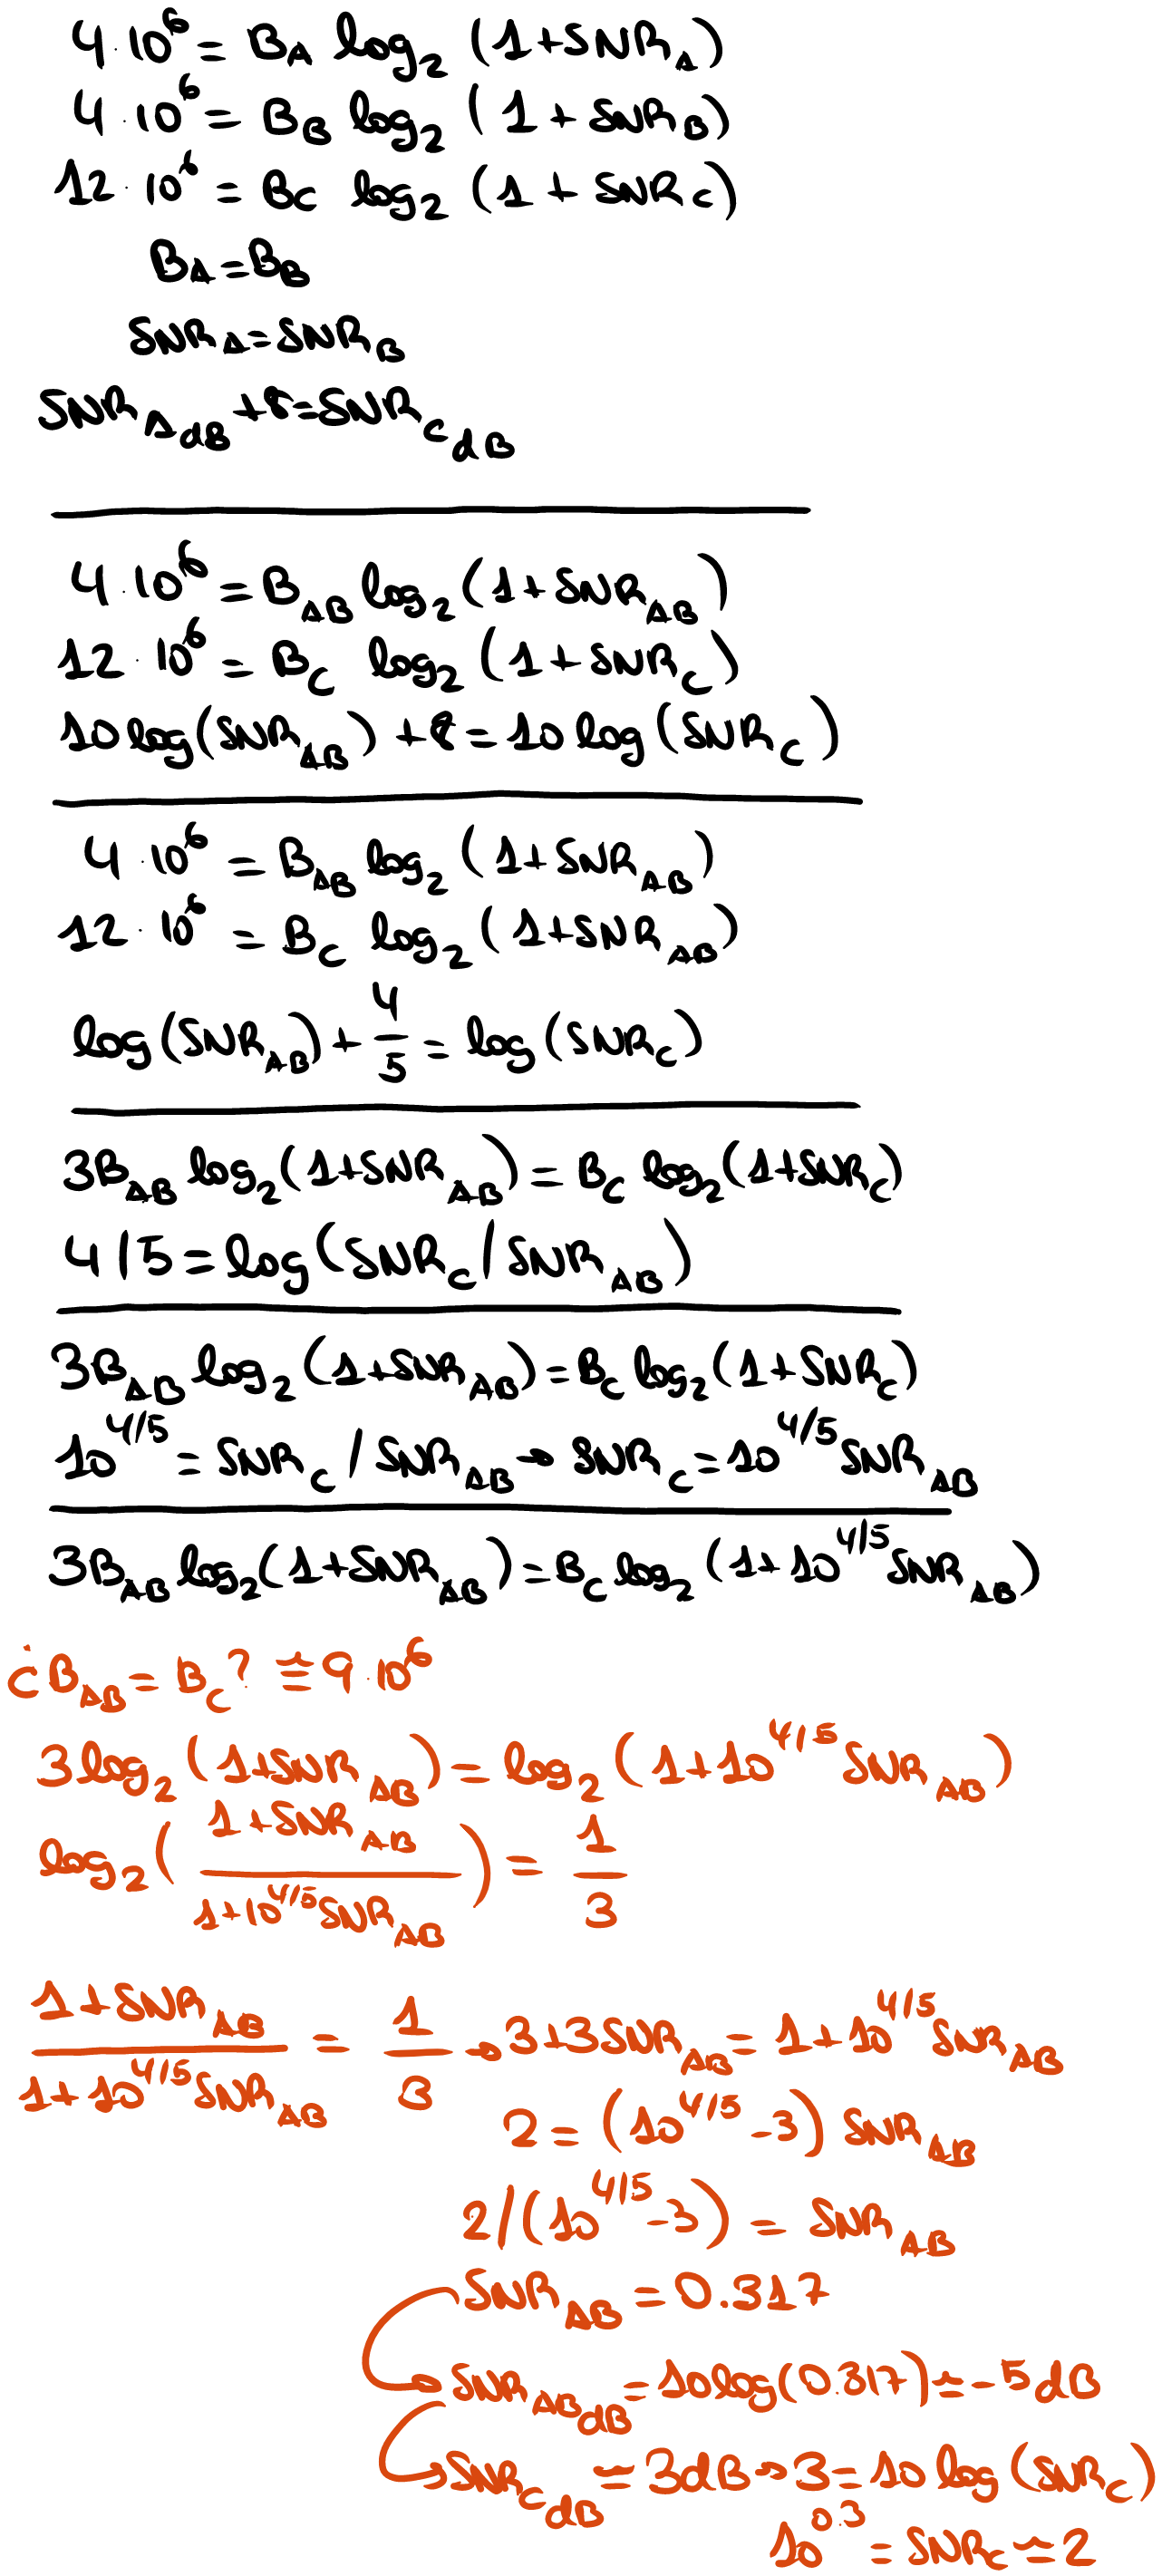 4·10⁶ = B_A log₂ (1+SNR_A)
4·10⁶ = B_B log₂ (1+SNR_B)
12·10⁶ = B_C log₂ (1+SNR_C)
B_A = B_B
SNR_A = SNR_B
SNR_A_dB +8 = SNR_C_dB
4·10⁶ = B_AB log₂ (1+SNR_AB)
12·10⁶ = B_C log₂ (1+SNR_C)
10 log(SNR_AB) +8 = 10 log (SNR_C)
4·10⁶ = B_AB log₂ (1+SNR_AB)
12·10⁶ = B_C log₂ (1+SNR_AB)
log (SNR_AB) + 4/5 = log (SNR_C)
3B_AB log₂ (1+SNR_AB) = B_C log₂ (1+SNR_C)
4/5 = log (SNR_C / SNR_AB)
3B_AB log₂ (1+SNR_AB) = B_C log₂ (1+SNR_C)
10^4/5 = SNR_C / SNR_AB → SNR_C = 10^4/5 SNR_AB
3B_AB log₂ (1+SNR_AB) = B_C log₂ (1+10^4/5 SNR_AB)
¿B_AB = B_C? ≅ 9·10⁶
3 log₂ (1+SNR_AB) = log₂ (1+10^4/5 SNR_AB)
log₂ ((1+SNR_AB)/(1+10^4/5 SNR_AB)) = 1/3
(1+SNR_AB)/(1+10^4/5 SNR_AB) = 1/3 → 3+3SNR_AB = 1+10^4/5 SNR_AB
2 = (10^4/5 -3) SNR_AB
2/(10^4/5 -3) = SNR_AB
SNR_AB = 0.317
SNR_AB_dB = 10 log(0.317) ≃ -5 dB
SNR_C_dB ≃ 3dB → 3 = 10 log (SNR_C)
10^0.3 = SNR_C ≃ 2